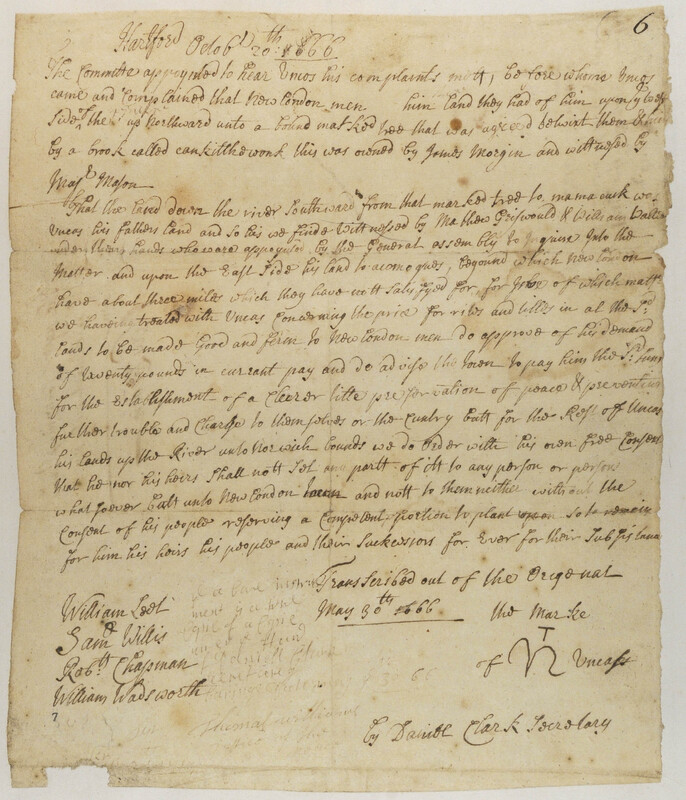 6
Hartford Octobr 20th: 1666
The Committe appoynted to hear Uncos his complaints mett, before whome Uncos
came and Complained that New London men him land they had of him upon
Side the up Northward unto a bound marked tree that was agreed betwixt them
by a brook called cankitthewonk this was owned by James Morgin and wittnesed by
Majr Mason
That the land down the river Southward from that marked tree to mamacuck wo
Uncos his fathers land and so his we finde wittnessed by Mathew Griswould & William
under their hands who ware appoynted by the General assembly to inquire Into the
Matter. and upon the East Side his land to acomogues, beyound which New London
have about three miles which they have nott Satisfyed for, for Issue of which matter
we haveing treated with Uncas Concerning the price for rites and titles in al the Sd
lands to be made Good and firm to New London men do approve of his demand
of twenty pounds in currant pay and do advise the town to pay him the Sd Summ
for the establishment of a Cleerer title preservation of peace & preventing
further trouble and Charge to themselves or the Cuntry butt for the Rest of Uncas
his lands up the River unto Norwich bounds we do Order with his own free Consent
that he nor his heirs Shall nott Sel any partt of itt to any person or persons
whatsoever butt unto New London town and nott to them neither without the
Consent of his people reserving a Competent portion to plant upon So to remain
for him his heirs his people and their Suckessors for Ever for their Subsistance
Transcribed out of the Origenal
May 30th 1666
William Leet
Samll Willis
Robtt Chapman
William Wadsworth
the Marke
of Uncass
by Daniel Clark Secretary
7